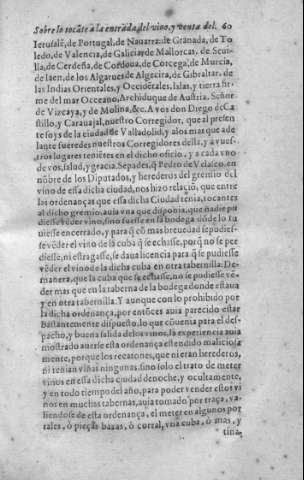 Sobre lo tocãte a la entrada del vino, y venta del. 60
Ierusalẽ, de Portugal, de Nauarra, de Granada, de To
ledo, de Valencia, de Galicia, de Mallorcas, de Seui-
lla, de Cerdeña, de Cordoua, de Corcega, de Murcia,
de Iaen, de los Algarues de Algecira, de Gibraltar, de
las Indias Orientales, y Occidẽtales, Islas, y tierra fir-
me del mar Oceano, Archiduque de Austria, Señor
de Vizcaya, y de Molina, &c. A vos don Diego de Ca
stillo, y Carauajal, nuestro Corregidor, que al presen
te soys de la ciudad de Valladolid, y a los mas que ade
lante fueredes nuestros Corregidores della, y a vues-
tros lugares teniẽtes en el dicho oficio, y a cada vno
de vos, salud, y gracia. Sepades, q̃ Pedro de Velasco, en
nõbre de los Diputados, y herederos del gremio del
vino de essa dicha ciudad, nos hizo relaciõ, que entre
las ordenanças que essa dicha Ciudad tenia, tocantes
al dicho gremio, auia vna que disponia, que nadie pu
diesse vẽder vino, sino fuesse en la bodega dõde lo tu
uiesse encerrado, y para q̃ cõ mas breuedad se pudies-
se vẽder el vino de la cuba q̃ se echasse, porq̃ no se per
diesse, ni estragasse, se daua licencia para q̃ se pudiesse
vẽder el vino de la dicha cuba en otra tabernilla: De
manera, que la cuba que se echasse, no se pudiesse vẽ-
der mas que en la taberna de la bodega donde estaua
y en otra tabernilla. Y aunque con lo prohibido por
la dicha ordenança, por entõces auia parecido estar
bastantemente dispuesto lo que cõuenia para el des-
pacho, y buena salida de los vinos, la experiencia auia
mostrado auerse esta ordenança estendido malicio-
mente, porque los recatones, que ni eran herederos,
ni tenian viñas ningunas, sino solo el trato de meter
vinos en essa dicha ciudad de noche, y ocultamente,
y en todo tiempo del año, para poder vender estos vi
nos en muchas tabernas, auia tomado por traça, va-
liendose de esta ordenança, el meter en algunos por
tales, ò pieças baxas, ò corral, vna cuba, ò mas, y
tina